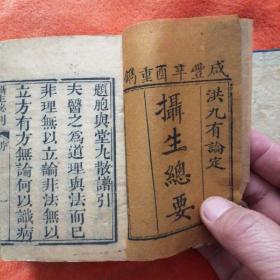 咸豐辛酉重鐫
洪九有論定
攝生總要
題胞與堂九散譜引
夫醫之為道理與法而已
非理無以立論非法無以
立方有方無論何以識病
序 一